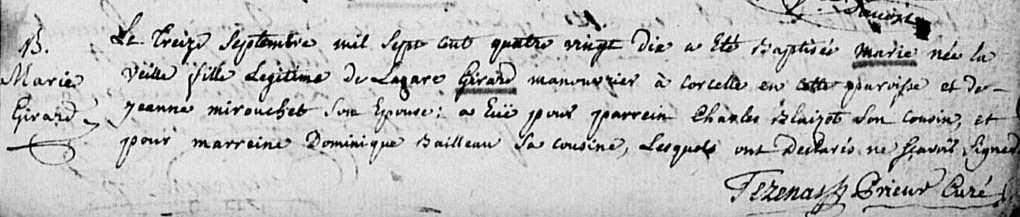 B.
Marie
Girard
Le treize Septembre mil Sept cent quatre vingt dix a été Baptisée Marie née la
veille fille Legitime de Lazare Girard manouvrier à corcelle en cette paroisse et de
jeanne mirouchet Son Epouse: a eüe pour parrein Charles Blaizot Son cousin, et
pour marreine Dominique Bailleau Sa cousine, Lesquels ont Declarés ne sçavoir Signer
Tezenas Prieur Curé